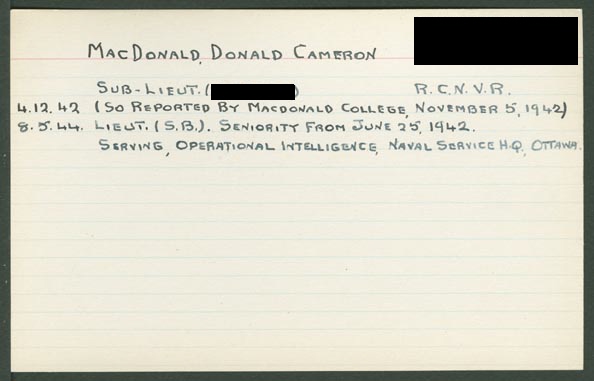 MACDONALD, DONALD CAMERON
SUB-LIEUT. ( ) R.C.N.V.R.
4.12.42 (SO REPORTED BY MACDONALD COLLEGE, NOVEMBER 5, 1942)
8.5.44. LIEUT. (S.B.). SENIORITY FROM JUNE 25, 1942.
SERVING, OPERATIONAL INTELLIGENCE, NAVAL SERVICE H.Q., OTTAWA.